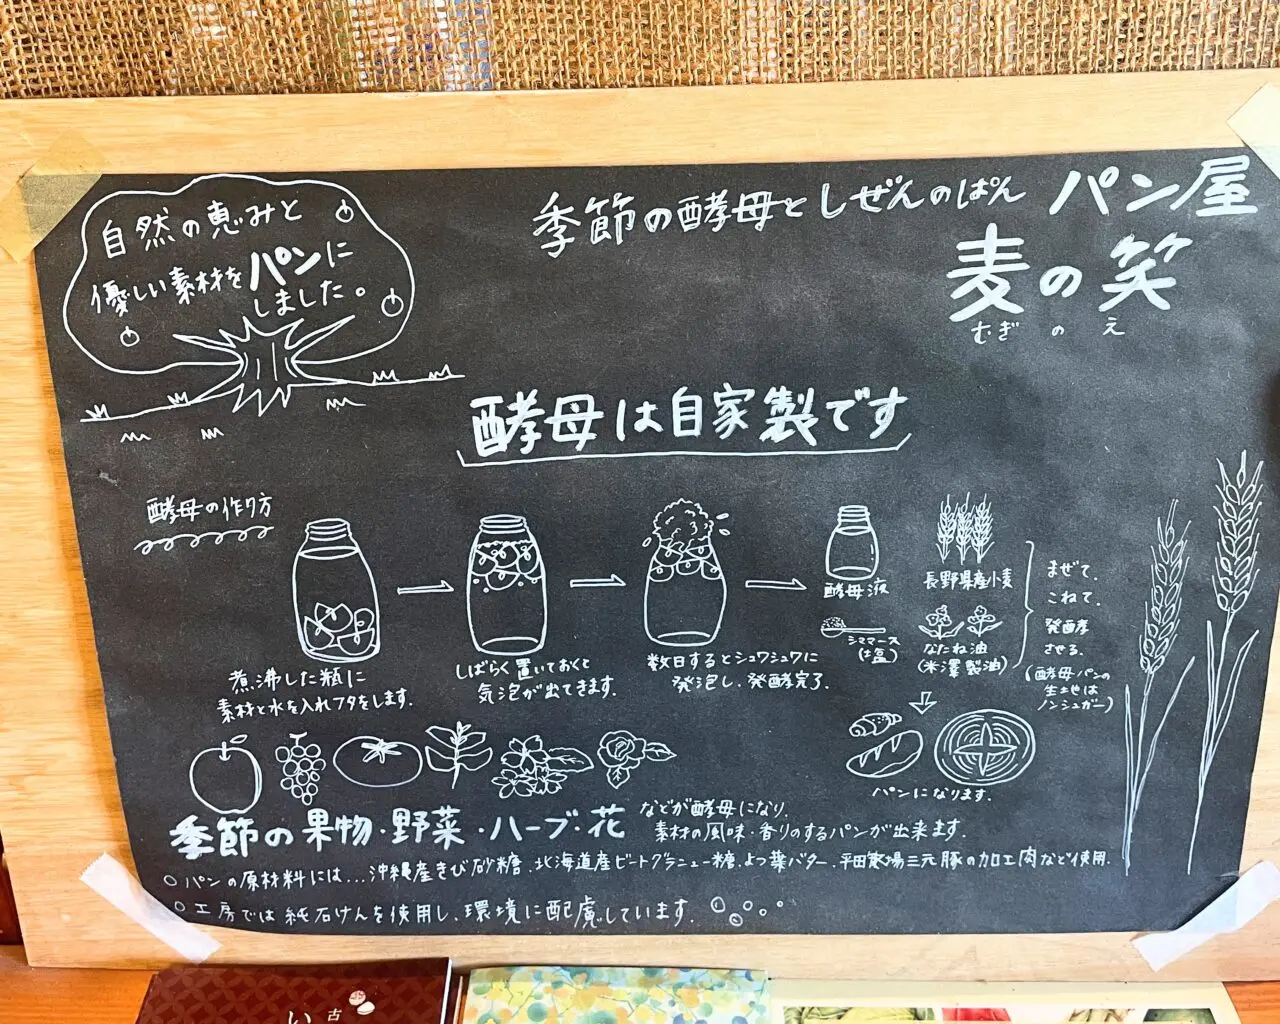 自然の恵みと
優しい素材をパンに
しました。
季節の酵母としぜんのぱん パン屋
麦の笑
むぎ の え
酵母は自家製です
酵母の作り方
煮沸した瓶に
素材と水を入れフタをします.
しばらく置いておくと
気泡が出てきます.
数日するとシュワシュワに
発泡し、発酵完了.
酵母液
シママース
(塩)
長野県産小麦
なたね油
(米澤製油)
まぜて、
こねて、
発酵
させる.
(酵母パンの
生地は
ノンシュガー)
パンになります.
季節の果物・野菜・ハーブ・花
などが酵母になり、
素材の風味・香りのするパンが出来ます.
○パンの原材料には…沖縄産きび砂糖、北海道産ビートグラニュー糖、よつ葉バター、平田牧場三元豚の加工肉など使用.
○工房では純石けんを使用し、環境に配慮しています.
古
い